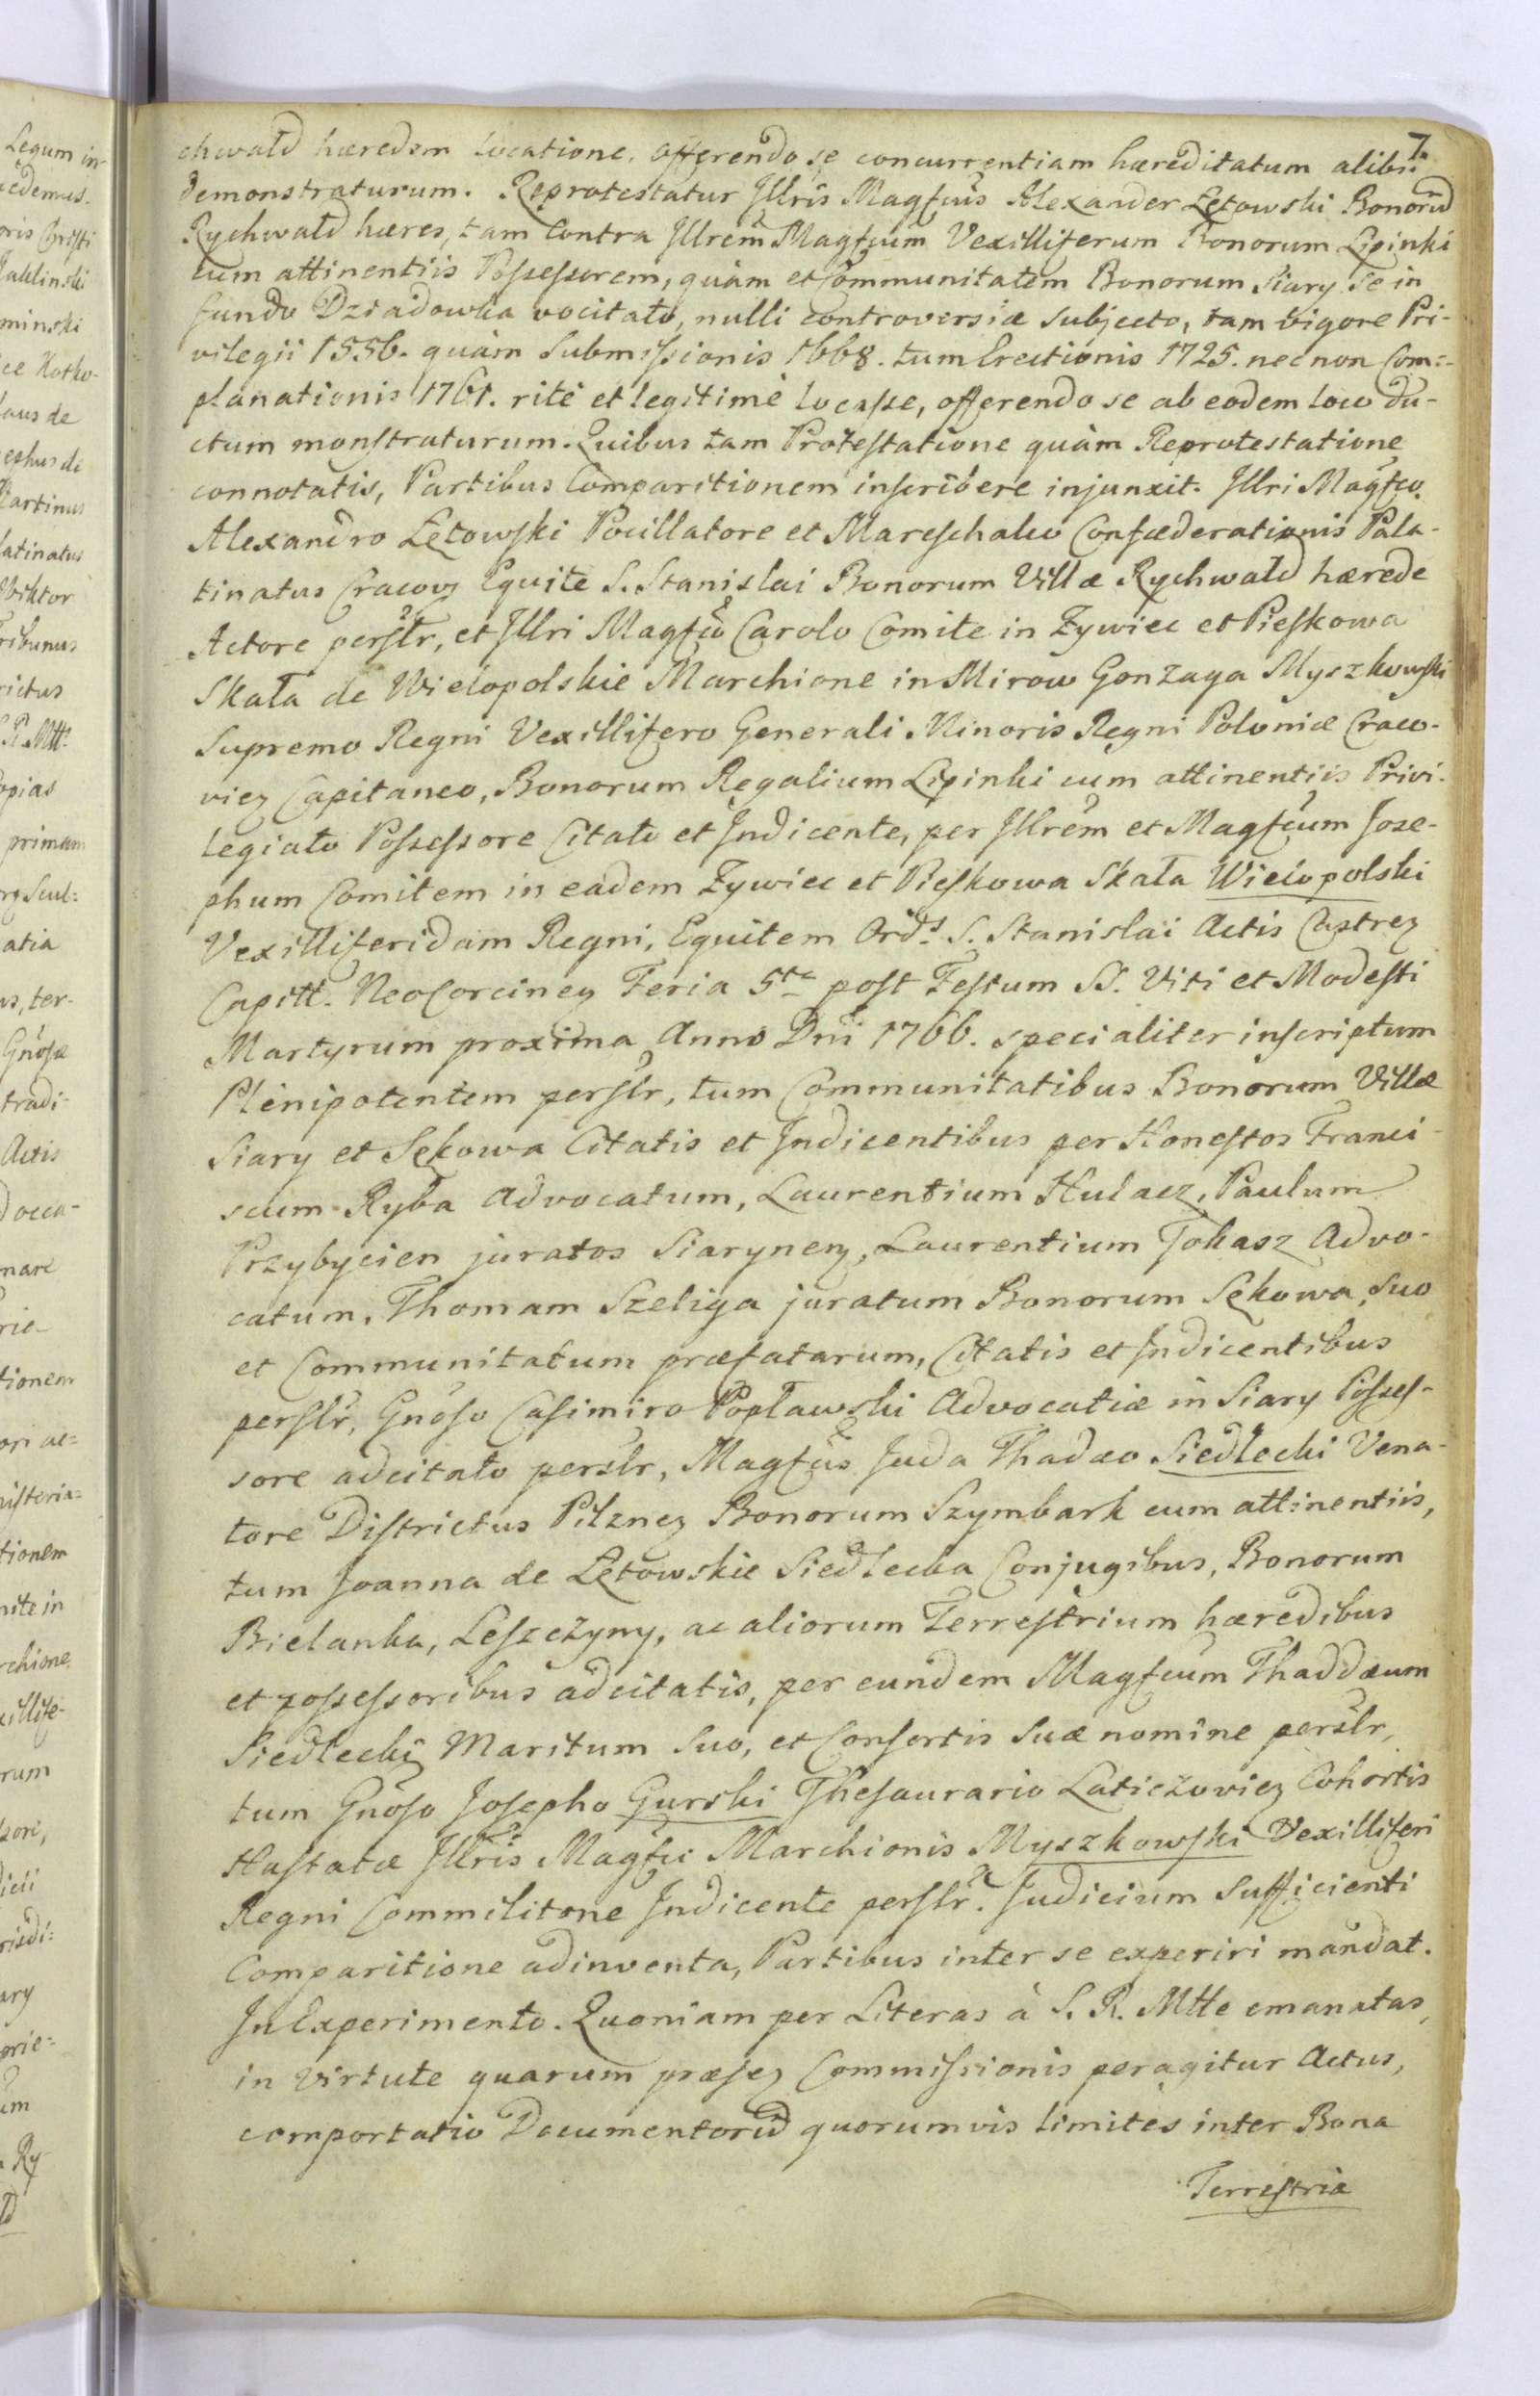 7.
chwałd hæredem locatione, offerendo se concurrentiam hæreditatum alibi
demonstraturum. Reprotestatur Jllris Magfcus Alexander Łętowski Bonorũ
Rychwałd hæres, tam Contra Jllrem Magfcum Vexilliferum Bonorum Lipinki
cum attinentiis Possessorem, quàm et Communitatem Bonorum Siary se in
fundo Dziadowka vocitato, nulli controversiæ subjecto, tam vigore Pri-
vilegii 1556. quàm Submissionis 1668. tum Erectionis 1725. nec non Com=
planationis 1761. rite et legitime locasse, offerendo se ab eodem loco du-
ctum monstraturum. Quibus tam Protestatione quàm Reprotestatione
connotatis, Partibus Comparitionem inscribere injunxit. Jllri Magfco
Alexandro Łętowski Pocillatore et Mareschalco Confæderationis Pala-
tinatus Cracov Equite S. Stanislai Bonorum Villæ Rychwałd hærede
Actore perslr, et Jllri Magfco Carolo Comite in Zywiec et Pieskowa
Skała de Wielopolskie Marchione in Mirow Gonzaga Myszkowski
Supremo Regni Vexillifero Generali Minoris Regni Poloniæ Craco-
vieз Capitaneo, Bonorum Regalium Lipinki cum attinentiis Privi-
legiato Possessore Citato et Indicente, per Jllrem et Magfcum Jose-
phum Comitem in eadem Zywiec et Pieskowa Skała Wielopolski
Vexilliferidam Regni, Equitem Ords S. Stanislai Actis Castreз
Capitt. NeoCorcineз Feria 5te post Festum SS. Viti et Modesti
Martyrum proxima Anno Dni 1766. specialiter inscriptum
Plenipotentem perslr, tum Communitatibus Bonorum Villæ
Siary et Sękowa Citatis et Indicentibus per Honestos Franci-
scum Ryba Advocatum, Laurentium Hulacz, Paulum
Przybycien juratos Siaryneз, Laurentium Tokasz Advo-
catum, Thomam Szeliga juratum Bonorum Sękowa, suo
et Communitatum præfatarum, Citatis et Indicentibus
perslr, Gnoso Casimiro Popławski Advocatiæ in Siary Posses-
sore adcitato perslr, Magfcus Juda Thadæo Siedlecki Vena-
tore Districtus Pilzneз Bonorum Szymbark cum attinentiis,
tum Joanna de Łętowskie Siedlecka Conjugibus, Bonorum
Bielanka, Leszczyny, ac aliorum Terrestrium hæredibus
et possessoribus adcitatis, per eundem Magfcum Thaddæum
Siedlecki Maritum suo, et Consortis suæ nomine perslr,
tum Gnoso Josepho Gurski Thesaurario Laticzovieз Cohortis
Hastatæ Jllris Magfci Marchionis Myszkowski Vexilliferi
Regni Commilitone Indicente perslr. Judicium Sufficienti
Comparitione adinventa, Partibus inter se experiri mandat.
In Experimento. Quoniam per Literas à S. R. Mtte emanatas,
in virtute quarum præseз Commissionis peragitur Actus,
comportatio Documentorũ quorumvis limites inter Bona
Terrestria